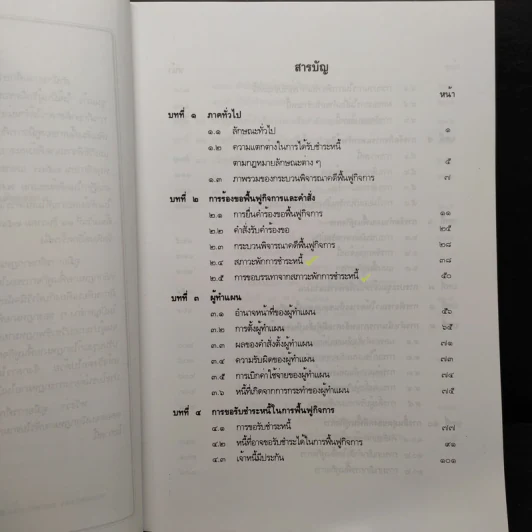 สารบัญ
หน้า
บทที่ ๑ ภาคทั่วไป
๑.๑ ลักษณะทั่วไป ๑
๑.๒ ความแตกต่างในการได้รับชำระหนี้
ตามกฎหมายลักษณะต่าง ๆ ๕
๑.๓ ภาพรวมของกระบวนพิจารณาคดีฟื้นฟูกิจการ ๗
บทที่ ๒ การร้องขอฟื้นฟูกิจการและคำสั่ง
๒.๑ การยื่นคำร้องขอฟื้นฟูกิจการ ๑๑
๒.๒ คำสั่งรับคำร้องขอ ๒๕
๒.๓ กระบวนพิจารณาคดีฟื้นฟูกิจการ ๒๘
๒.๔ สภาวะพักการชำระหนี้ ๓๘
๒.๕ การขอบรรเทาจากสภาวะพักการชำระหนี้ ๕๐
บทที่ ๓ ผู้ทำแผน
๓.๑ อำนาจหน้าที่ของผู้ทำแผน ๕๖
๓.๒ การตั้งผู้ทำแผน ๖๕
๓.๓ ผลของคำสั่งตั้งผู้ทำแผน ๗๑
๓.๔ ความรับผิดของผู้ทำแผน ๗๓
๓.๕ การเบิกค่าใช้จ่ายของผู้ทำแผน ๗๔
๓.๖ หนี้ที่เกิดจากการกระทำของผู้ทำแผน ๗๕
บทที่ ๔ การขอรับชำระหนี้ในการฟื้นฟูกิจการ
๔.๑ การขอรับชำระหนี้ ๗๗
๔.๒ หนี้ที่อาจขอรับชำระได้ในการฟื้นฟูกิจการ ๙๑
๔.๓ เจ้าหนี้มีประกัน ๑๐๑